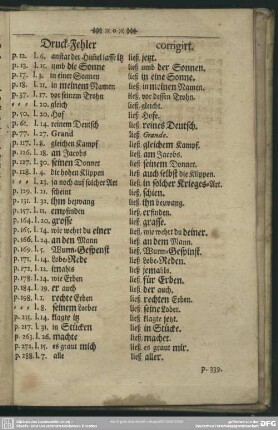 Druck-Fehler corrigirt.
p. 12. l. 6. anstat der Hunel lasse itz ließ. jetzt.
p. 13. l. 15. umb die Sonne ließ. umb der Sonnen.
p. 17. l. 3. in einer Sonnen ließ. in eine Sonne.
p. 18. l. 11. in meinem Namen ließ. in meinen Namen.
p. 37. l. 17. vor seinem Trohn ließ. vor dessen Trohn.
l. 20. gleich ließ. gleicht.
p. 50. l. 20. Hof ließ. Hofe.
p. 62. l. 14. reinem Deutsch ließ. reines Deutsch.
p. 77. l. 27. Grand ließ. Grande.
p. 117. l. 8. gleichen Kampf ließ. gleichem Kampf.
p. 126. l. 18. an Jacobs ließ. am Jacobs.
p. 127. l. 30. seinen Donner ließ. seinem Donner.
p. 128. l. 4. die hohen Klippen ließ. auch selbst die Klippen.
l. 23. ja noch auf solcher Art ließ. in solcher Krieges-Art.
p. 129. l. 21. scheint ließ. schien.
p. 131. l. 32. ihm bezwang ließ. ihn bezwang.
p. 157. l. 11. empfinden ließ. erfinden.
p. 164. l. 20. grosse ließ. grasse.
p. 165. l. 14. wie wehrt du einer ließ. wie wehrt du deiner.
p. 166. l. 24. an den Mann ließ. an dem Mann.
p. 169. l. 5. Wurm-Gespenst ließ. Wurm-Gespinst.
p. 171. l. 14. Lobe-Rede ließ. Lobe-Reden.
p. 172. l. 12. imahls ließ. jemahls.
p. 178. l. 14. wie Erben ließ. für Erben.
p. 184. l. 19. er auch ließ. der auch.
p. 198. l. 2. rechte Erben ließ. rechten Erben.
l. 8. seinem Lorber ließ. seine Lober.
p. 215. l. 14. flagte itz ließ. flagte jetzt.
p. 217. l. 31. in Stücken ließ. in Stücke.
p. 263. l. 26. machte ließ. machet.
p. 272. l. 15. es graut mich ließ. es graut mir.
p. 288. l. 7. alle ließ. aller.
p. 339.